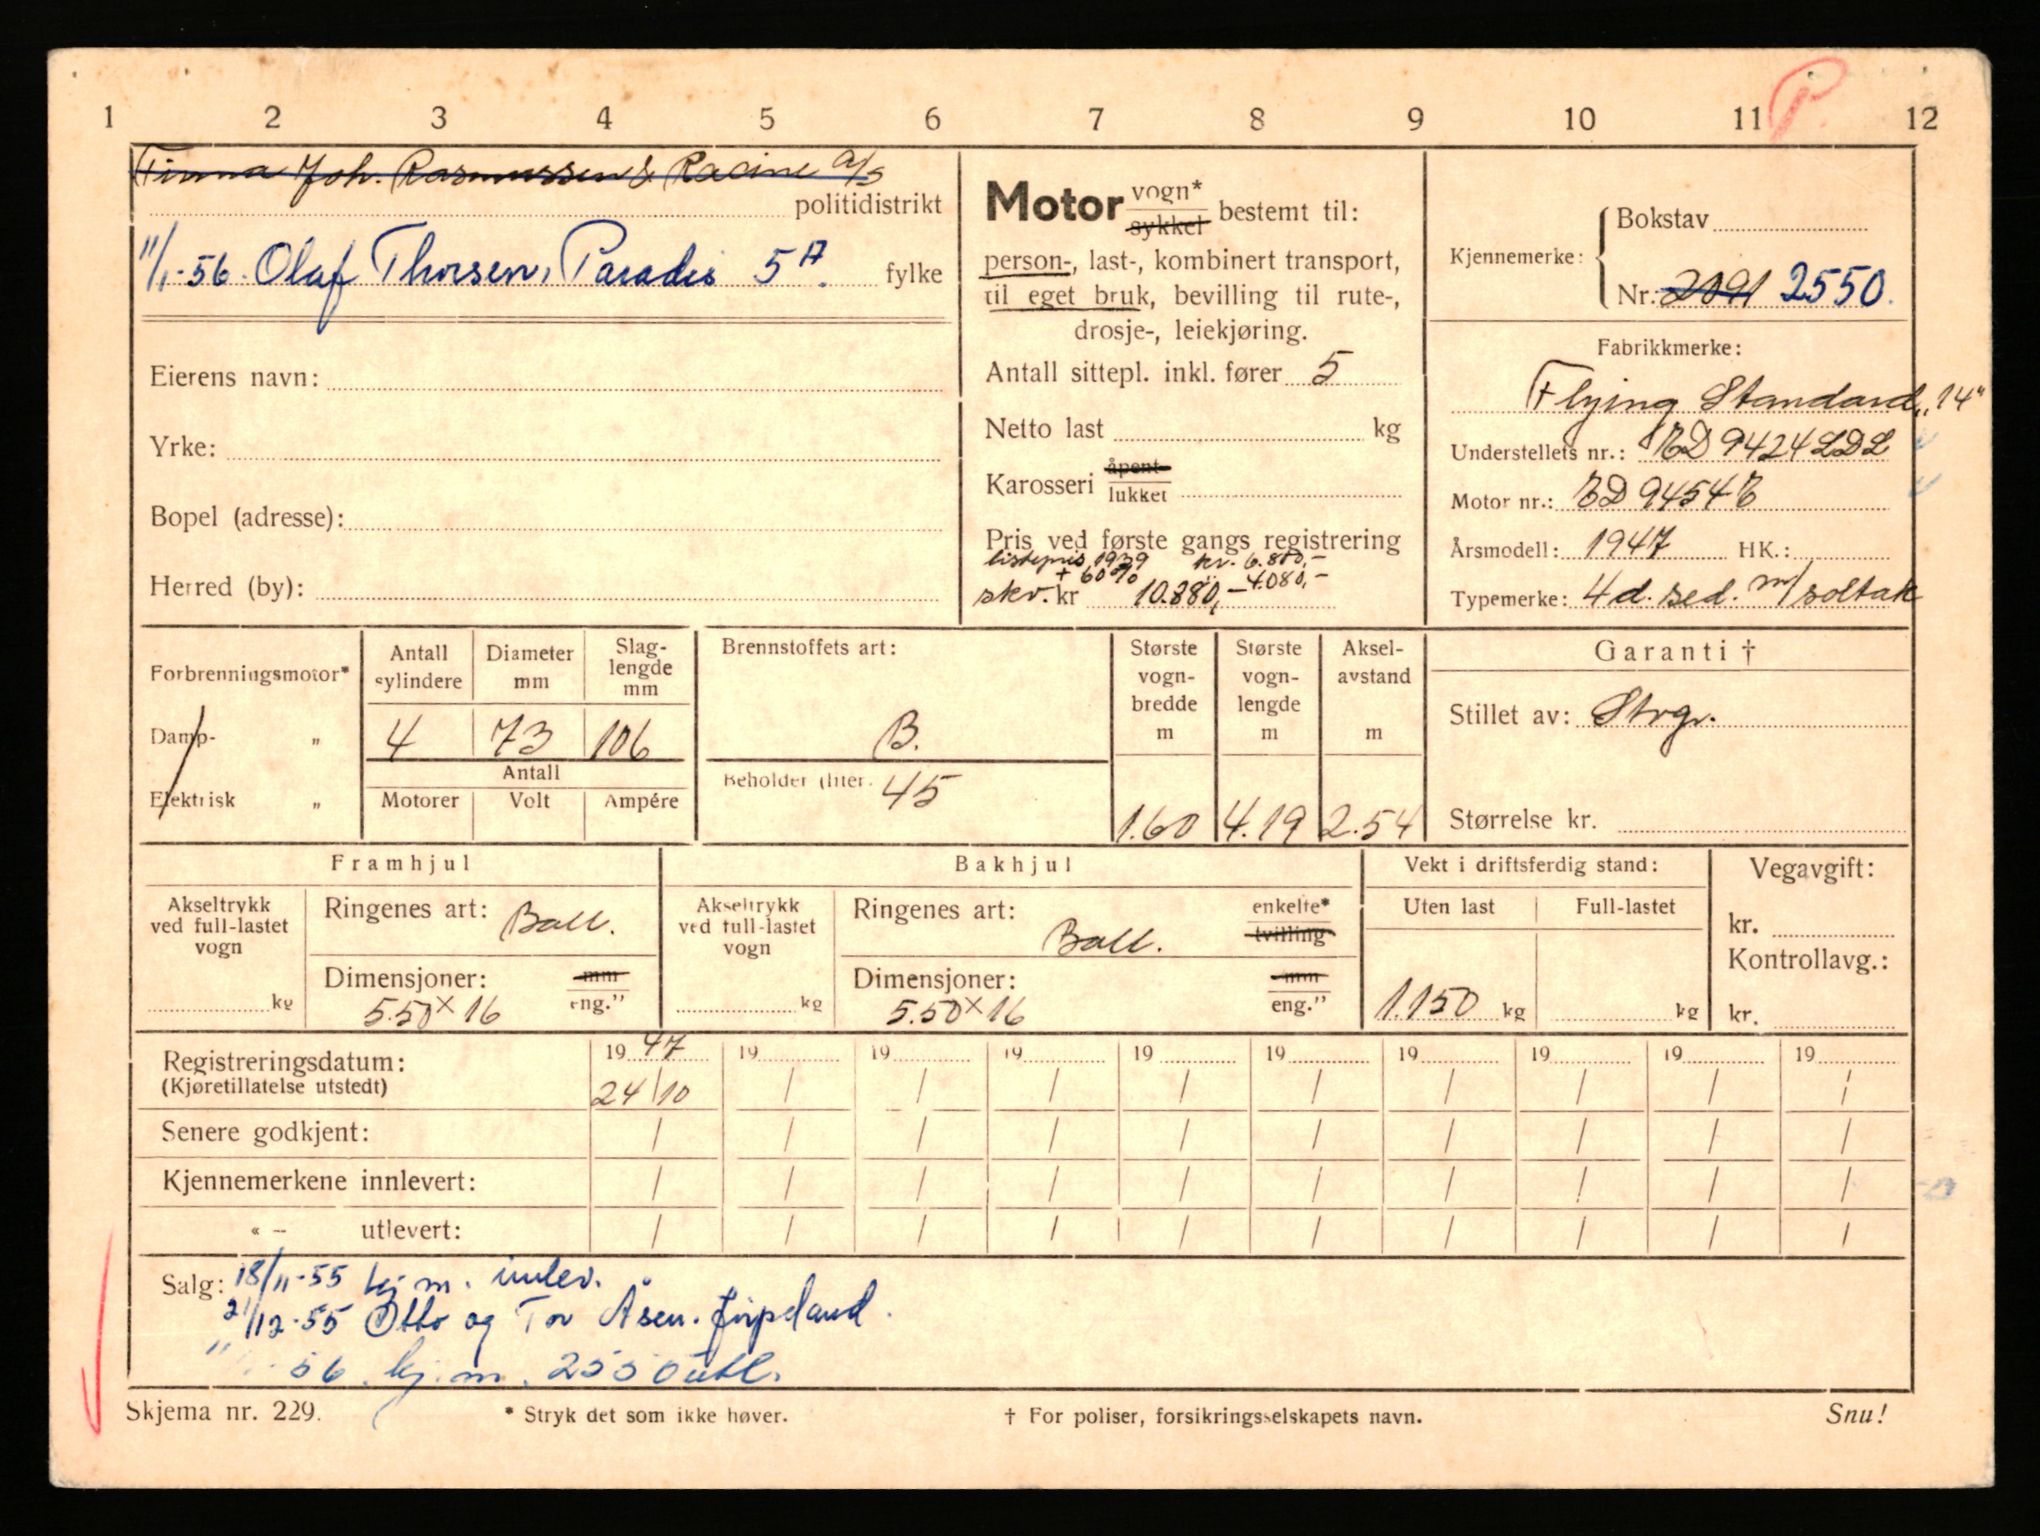 1 2 3 4 5 6 7 8 9 10 11 12
P.
Firma Joh. Rasmussen & Racine a/s
politidistrikt
11/1-56. Olaf Thorsen, Paradis 5A. fylke
Eierens navn:
Yrke:
Bopel (adresse):
Herred (by):
Motor vogn* sykkel bestemt til:
person-, last-, kombinert transport,
til eget bruk, bevilling til rute-,
drosje-, leiekjøring.
Antall sittepl. inkl. fører 5
Netto last kg
Karosseri åpent lukket
Pris ved første gangs registrering
listepris 1939 kr. 6.800,-
+ 60% 4.080,-
skv. kr 10.880,-
Kjennemerke: Bokstav
Nr. 2091 2550.
Fabrikkmerke:
Flying Standard „14"
Understellets nr.: ED 9424 LDL
Motor nr.: ED 9454 E
Årsmodell: 1947 HK.:
Typemerke: 4 d. sed. m/soltak
Forbrenningsmotor*
Damp- „
Elektrisk „
Antall sylindere Diameter mm Slag-lengde mm
4 73 106
Antall
Motorer Volt Ampére
Brennstoffets art:
B.
Beholder (liter. 45
Største vogn-bredde m
1.60
Største vogn-lengde m
4.19
Aksel-avstand m
2.54
Garanti †
Stillet av: Strgr.
Størrelse kr.
Framhjul
Akseltrykk ved full-lastet vogn
kg
Ringenes art: Ball.
Dimensjoner: mm eng."
5.50 x 16
Bakhjul
Akseltrykk ved full-lastet vogn
kg
Ringenes art: Ball. enkelte* tvilling
Dimensjoner: mm eng."
5.50 x 16
Vekt i driftsferdig stand:
Uten last Full-lastet
1.150 kg kg
Vegavgift:
kr.
Kontrollavg.:
kr.
Registreringsdatum: 19 47 19 19 19 19 19 19 19 19 19
(Kjøretillatelse utstedt) 24/10 / / / / / / / / /
Senere godkjent: / / / / / / / / / /
Kjennemerkene innlevert: / / / / / / / / / /
« – utlevert: / / / / / / / / / /
Salg: 18/11-55 kj.m. innlev.
21/12-55 Otto og Tor Åsen. Jørpeland.
11/1-56. kj.m. 2550 utl.
Skjema nr. 229. * Stryk det som ikke høver. † For poliser, forsikringsselskapets navn. Snu!